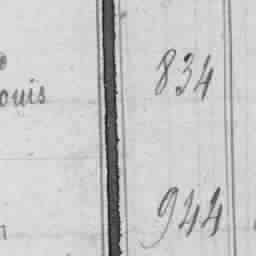 834
ouis
944